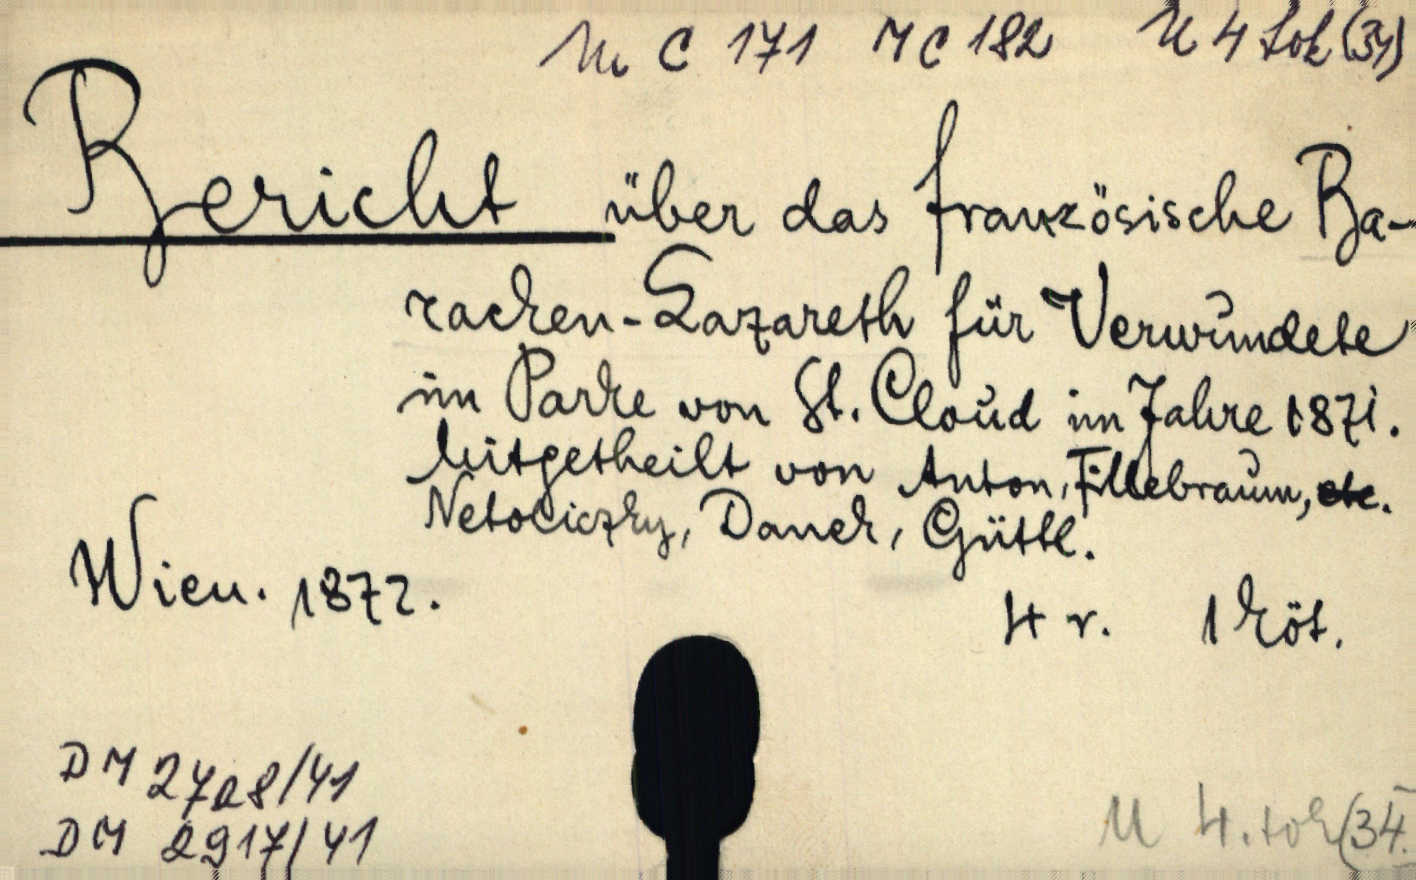 M. C 171 M C 182 M 4 tok (34)
Bericht über das französische Ba-
racken-Lazareth für Verwundete
im Parke von St. Cloud im Jahre 1871.
Mitgetheilt von Anton, Fillebraum, etc.
Netoliczky, Danek, Güttl.
Wien. 1872.
4 r. 1 köt.
DM 2728/41
DM 2917/41
M 4. tok (34.